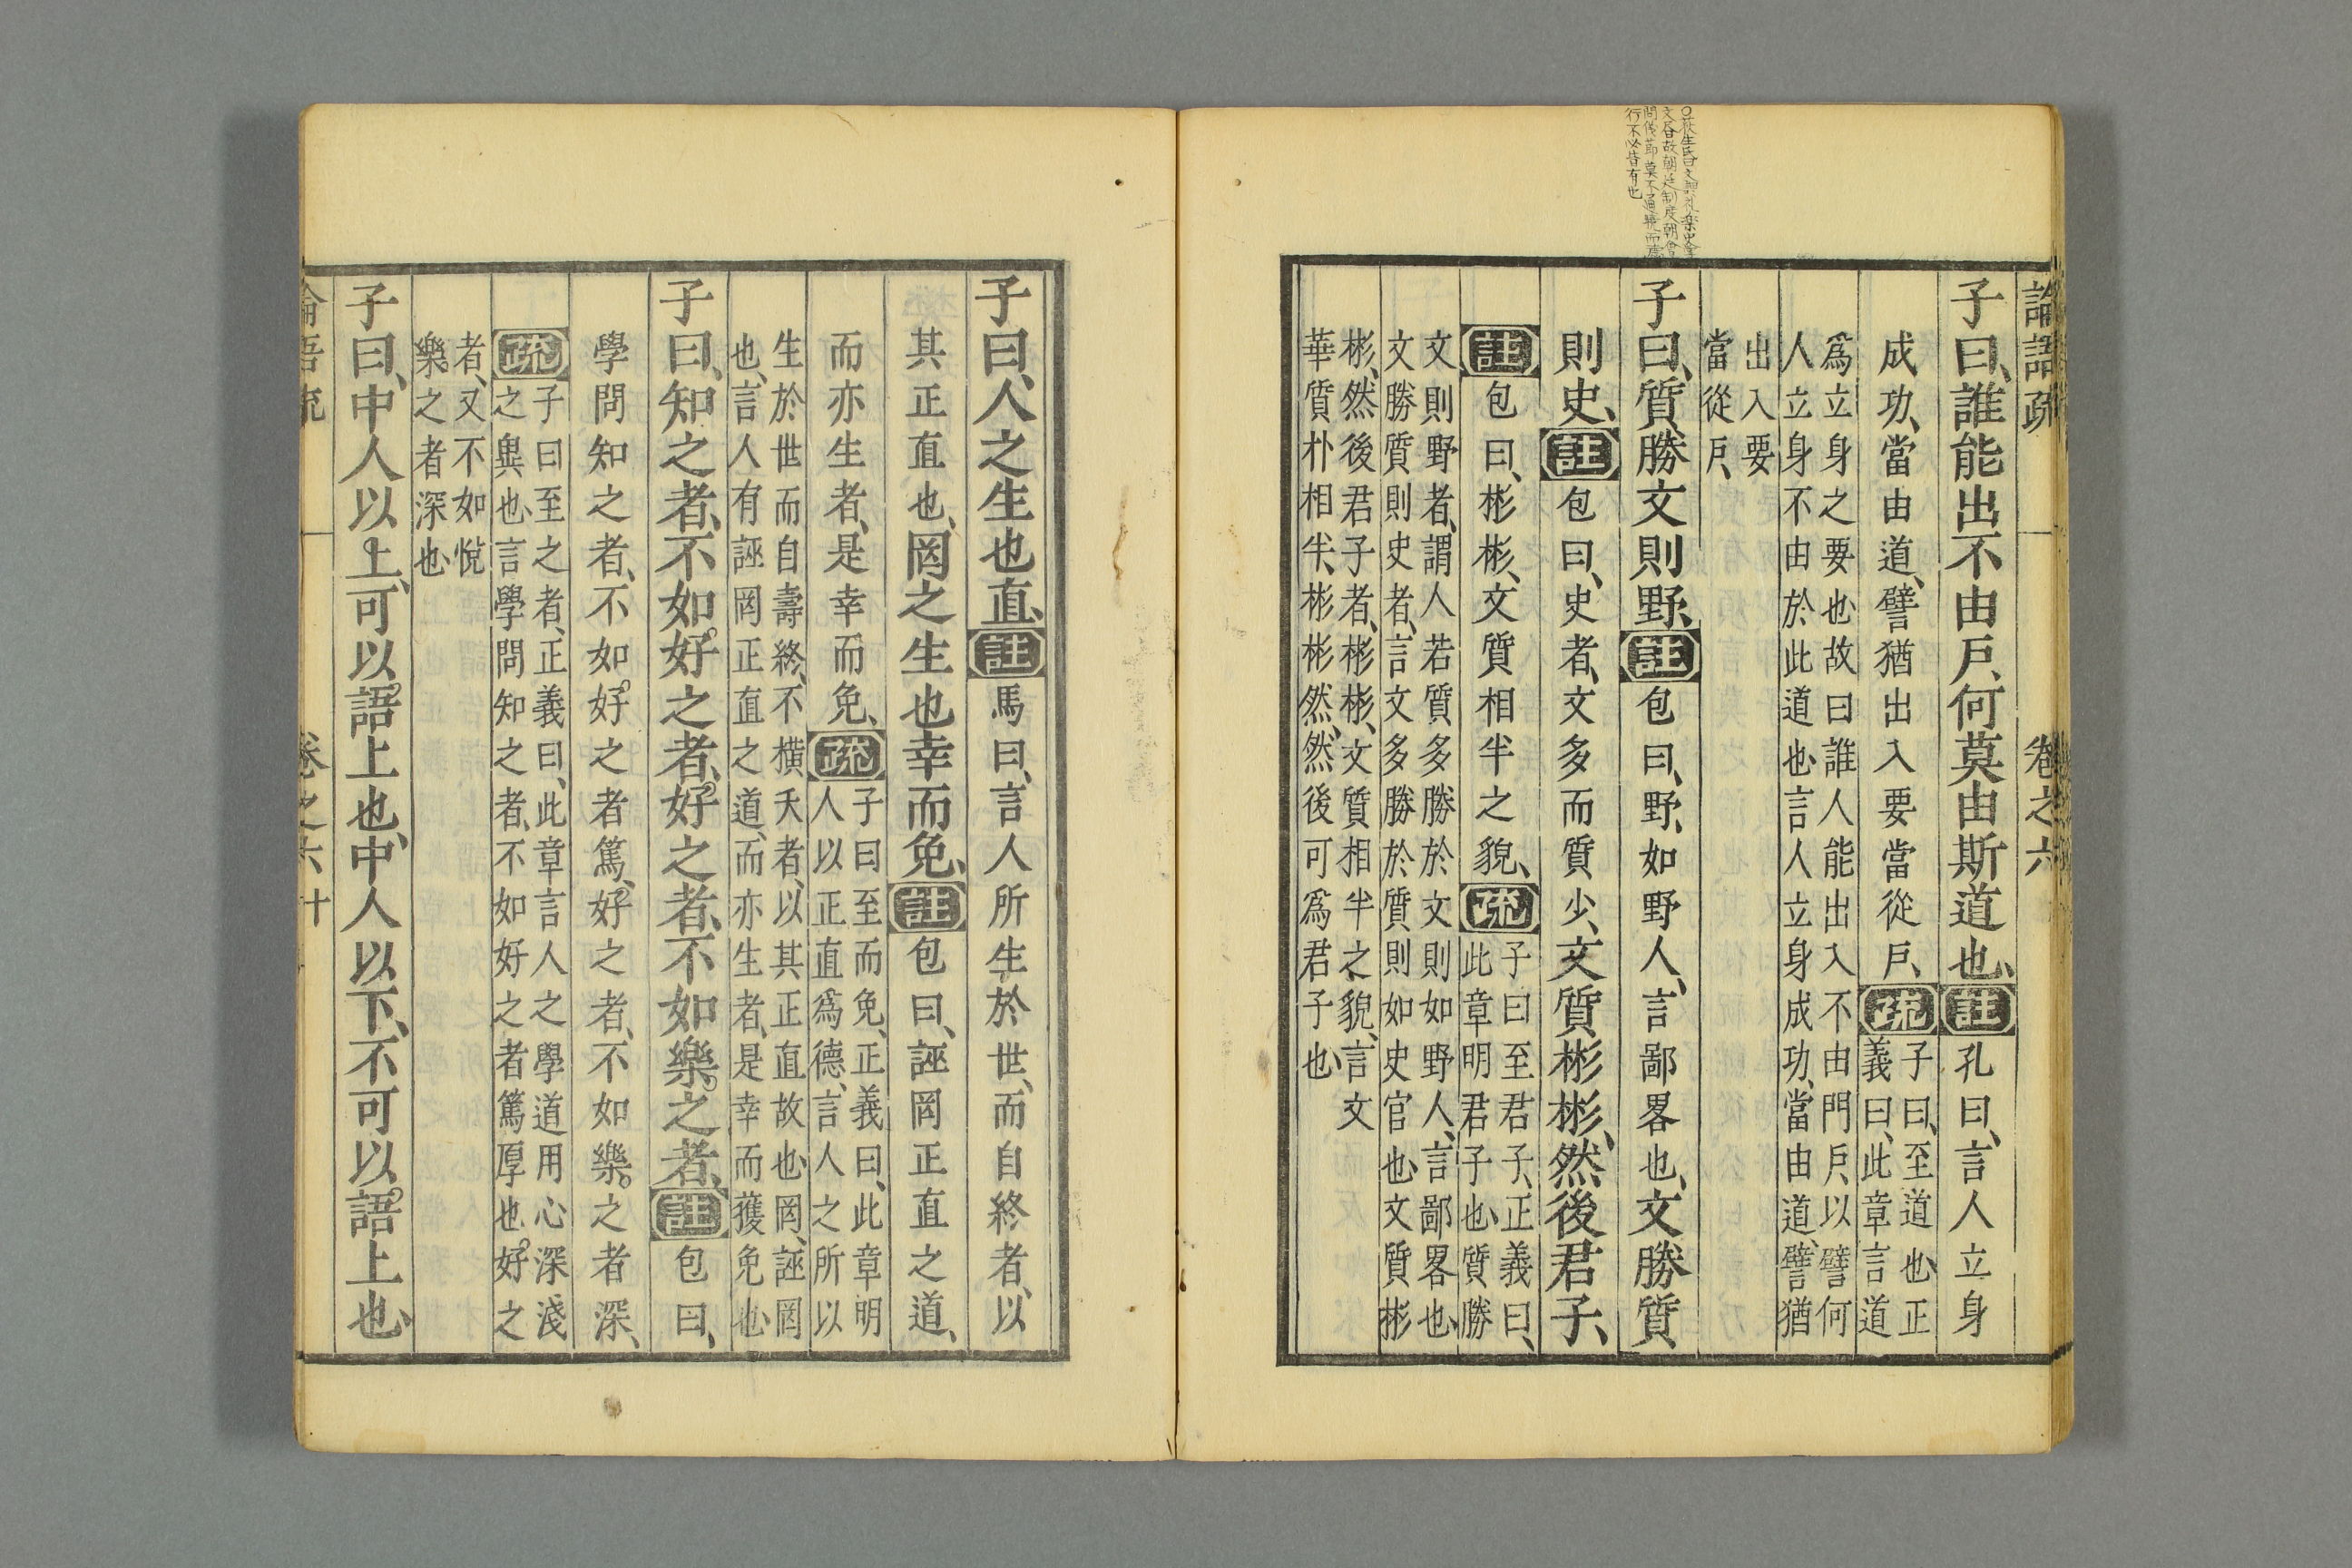 論語疏 卷之六
子曰、誰能出不由戸、何莫由斯道也、註孔曰、言人立身
成功、當由道、譬猶出入要當從戸、疏子曰、至道也正
義曰、此章言道
爲立身之要也故曰誰人能出入不由門戸、以譬何
人立身不由於此道也、言人立身成功、當由道、譬猶
出入要
當從戸、
子曰、質勝文則野、註包曰、野、如野人、言鄙畧也、文勝質
則史、註包曰、史者、文多而質少、文質彬彬、然後君子、
註包曰、彬彬、文質相半之貌、疏子曰至君子、正義曰、
此章明君子也、質勝
文則野者、謂人若質多勝於文則如野人、言鄙畧也、
文勝質則史者、言文多勝於質則如史官也、文質彬
彬、然後君子者、彬彬、文質相半之貌、言文
華質朴相半、彬彬然、然後可爲君子也
子曰、人之生也直、註馬曰、言人所生於世、而自終者、以
其正直也、罔之生也幸而免、註包曰、誣罔正直之道、
而亦生者、是幸而免、疏子曰至而免、正義曰、此章明
人以正直爲德、言人之所以
生於世而自壽終、不橫夭者、以其正直故也、罔、誣罔
也、言人有誣罔正直之道、而亦生者、是幸而獲免也
子曰、知之者、不如好之者、好之者、不如樂之者、註包曰、
學問知之者、不如好之者篤、好之者、不如樂之者深、
疏子曰至之者、正義曰、此章言人之學道用心深淺
之異也、言學問知之者、不如好之者篤厚也、好之
者、又不如悅
樂之者深也
子曰、中人以上、可以語上也、中人以下、不可以語上也、
論語疏 卷之六 十